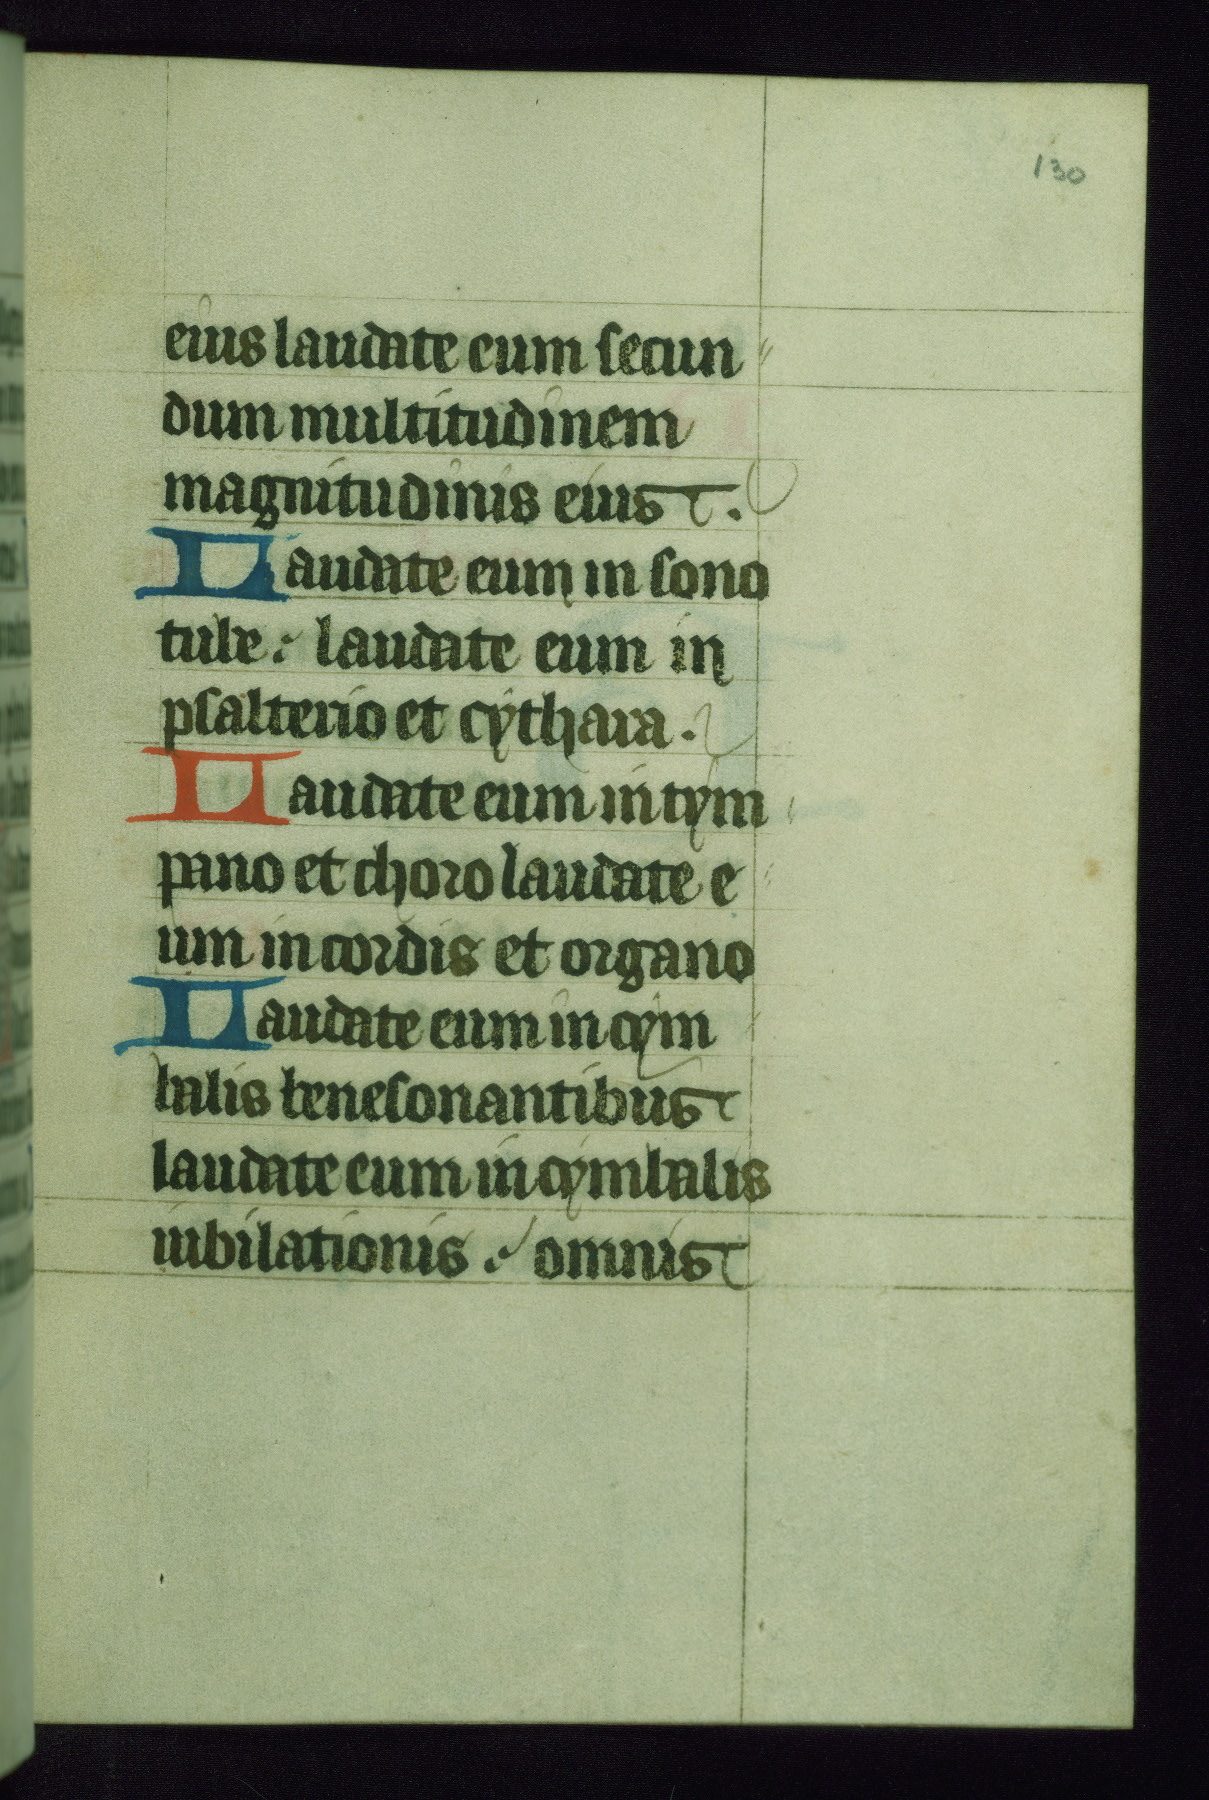 130
eius laudate eum secun
dum multitudinem
magnitudinis eius.
Laudate eum in sono
tube: laudate eum in
psalterio et cythara.
Laudate eum in tym
pano et choro laudate e
um in cordis et organo
Laudate eum in cym
balis benesonantibus
laudate eum in cymbalis
iubilationis: omnis